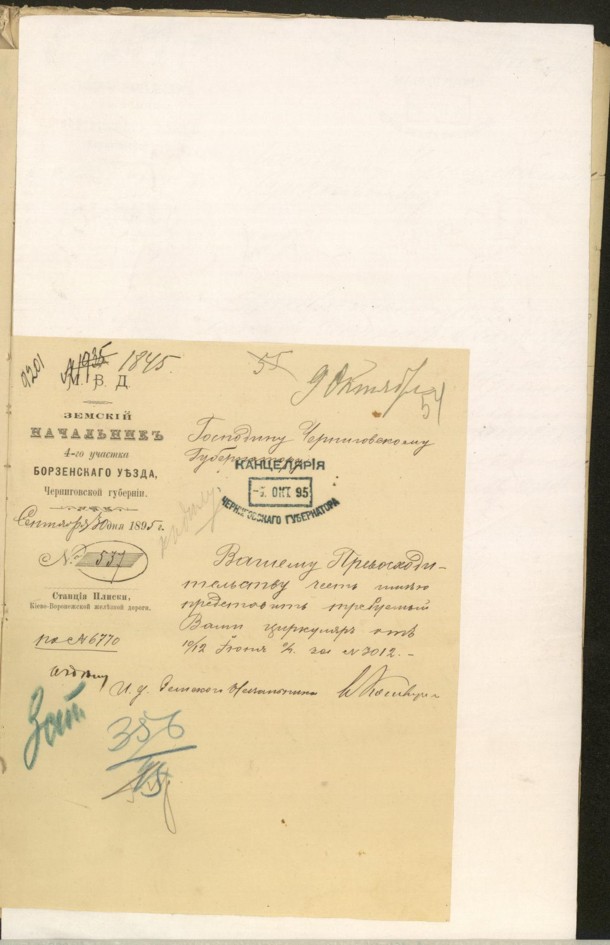 9201
№ 1935 1845
55
9 Октября
54
М. В. Д.
ЗЕМСКІЙ
НАЧАЛЬНИКЪ
4-го участка
БОРЗЕНСКАГО УѢЗДА,
Черниговской губерніи.
Сентября 30 дня 1895 г.
№ 537
Станція Плиски,
Кіево-Воронежской желѣзной дороги.
по № 6770
Господину Черниговскому
Губернатору
КАНЦЕЛЯРІЯ
ОКТ 95
ЧЕРНИГОВСКАГО ГУБЕРНАТОРА
Вашему Превосходи-
тельству честь имѣю
представить требуемый
Вами циркуляръ отъ
10/12 Іюня за № 7012.-
И. д. Земскаго Начальника
356
95